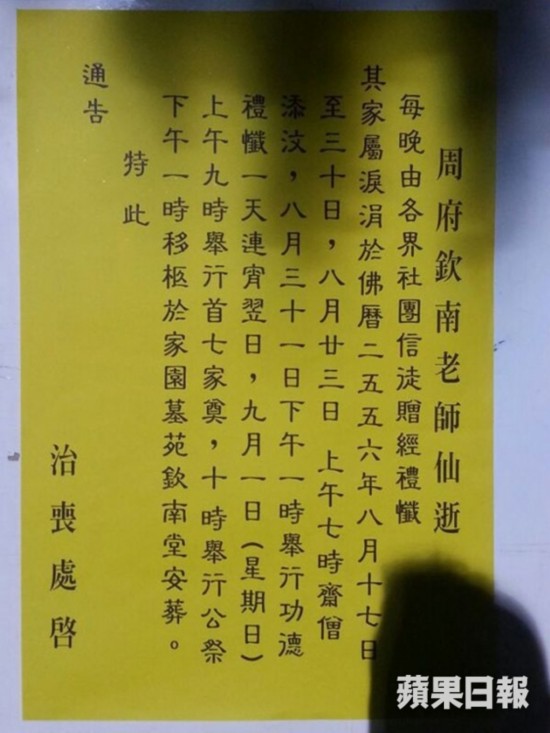 周府欽南老師仙逝
每晚由各界社團信徒贈經禮懺
其家屬淚涓於佛曆二五五六年八月十七日
至三十日，八月廿三日 上午七時齋僧
添汶，八月三十一日下午一時舉行功德
禮懺一天連宵翌日，九月一日(星期日)
上午九時舉行首七家奠，十時舉行公祭
下午一時移柩於家園墓苑欽南堂安葬。
特此
通告
治喪處啓
蘋果日報